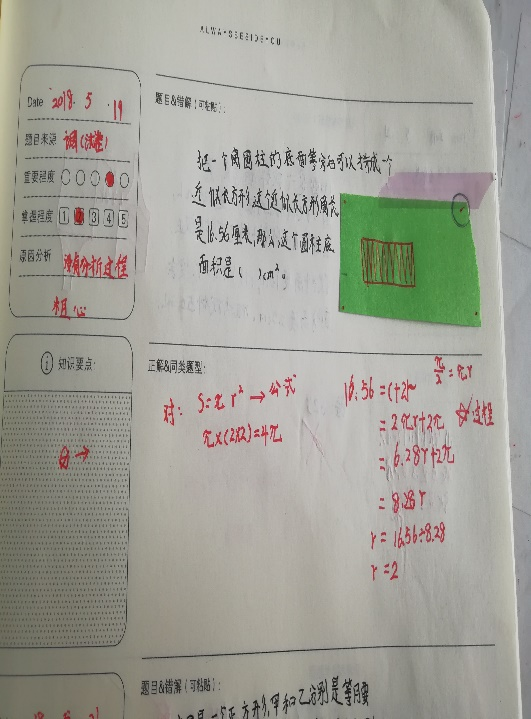 ALWAYSBESIDE·CU
Date 2018. 5 .19
题目来源
重要程度
掌握程度 1 2 3 4 5
原因分析 没有分析过程
粗心
题目&错解(可粘贴):
把一个圆柱的底面等分后可以拼成一个
近似长方形,这个近似长方形周长
是16.56厘米,那么,这个圆柱底
面积是( )cm²。
知识要点:
正解&同类题型:
对: S=πr² → 公式
π×(2×2)=4π
16.56=
=2πr+2r
=6.28r+2r
=8.28r
r=16.56÷8.28
r=2
=πr
☆过程
题目&错解(可粘贴):